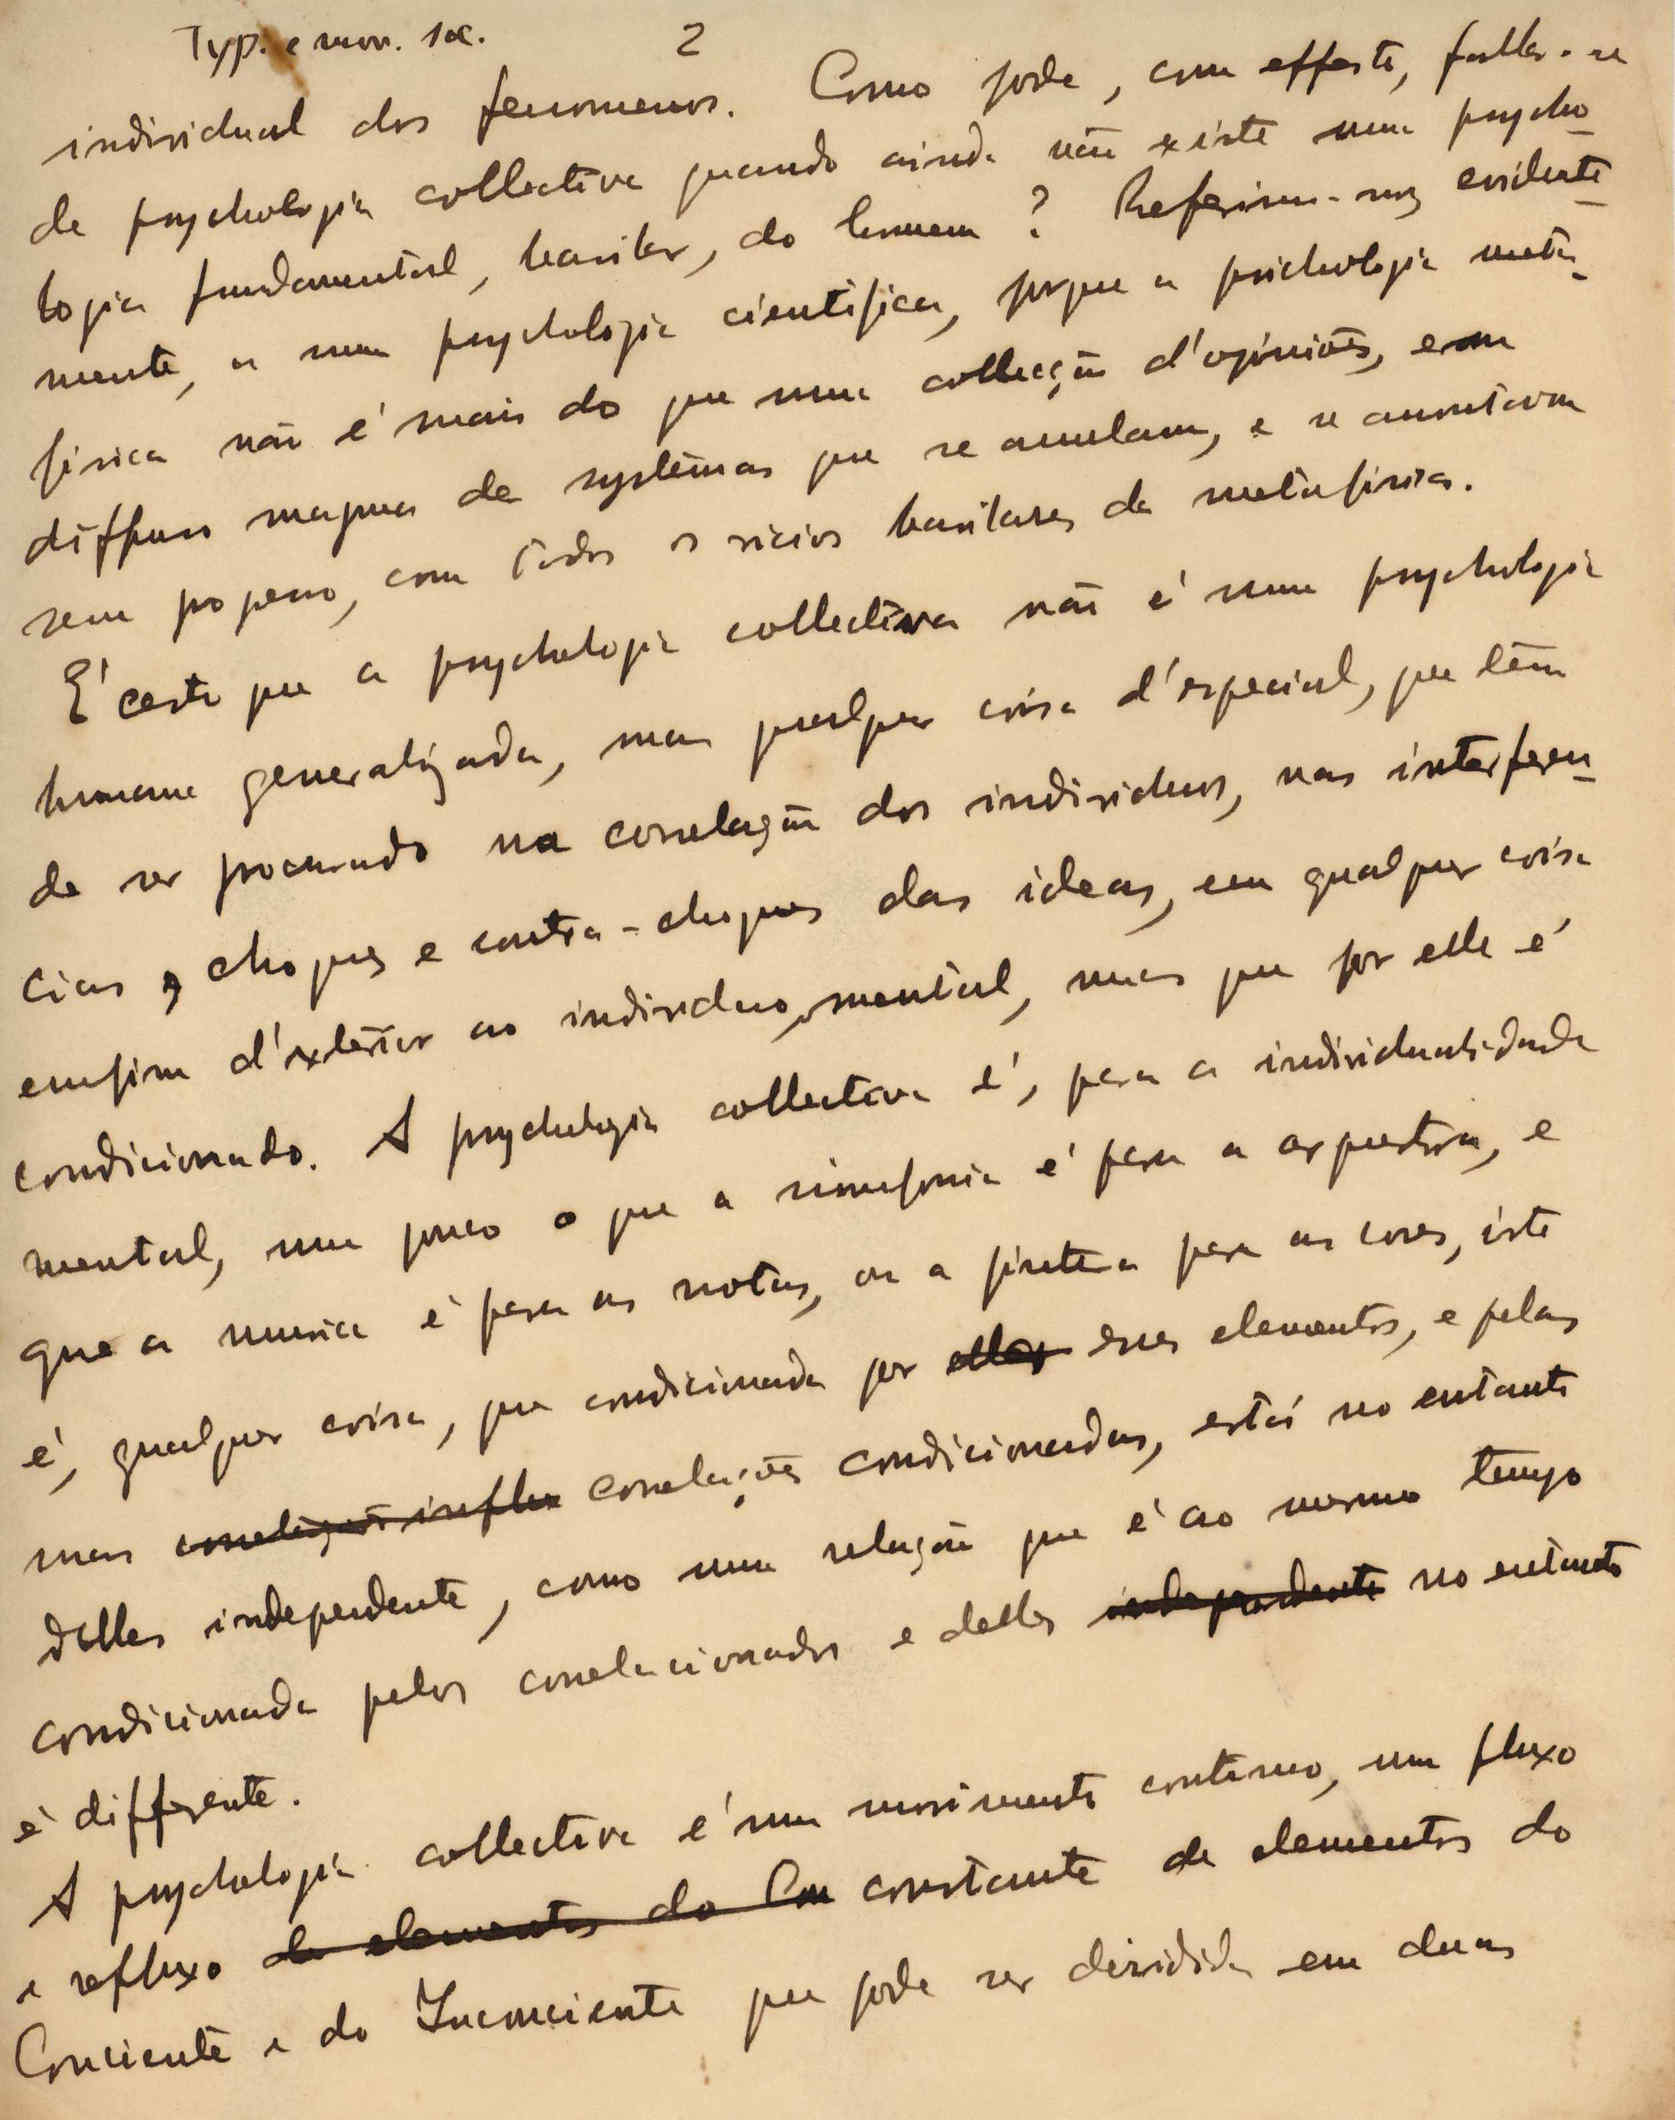 Typ. e mov. soc. 2
individual dos fenomenos. Como pode, com effeito, fallar-se
de psychologia collectiva quando ainda não existe uma psycho-
logia fundamental, basilar, do homem? Referimo-nos, evidente-
mente, a uma psychologia cientifica, porque a psichologia meta-
fisica não é mais do que uma collecção d'opiniões, e um
diffuso magma de systemas que se annulam, e se amontoam
sem progresso, com todos os vicios basilares da metafisica.
É certo que a psychologia collectiva não é uma psychologia
humana generalizada, mas qualquer coisa d'especial, que tem
de ser procurado na correlação dos individuos, nas interferen-
cias, choques e contra-choques das ideas, em qualquer coisa
emfim d'exterior ao individuo mental, mas que por elle é
condicionado. A psychologia collectiva é, para a individualidade
mental, um pouco o que a simfonia é para a orquestra, e
que a musica é para as notas, ou a pintura para as cores, isto
é, qualquer coisa, que condicionada por ellas esses elementos, e pelas
suas correlações influx correlações condicionadas, está no entanto
delles independente, como uma relação que é ao mesmo tempo
condicionada pelos correlacionados e delles independente no entanto
é differente.
A psychologia collectiva é um movimento continuo, um fluxo
e refluxo de elementos do Con constante de elementos do
Conciente e do Inconciente que pode ser dividida em duas